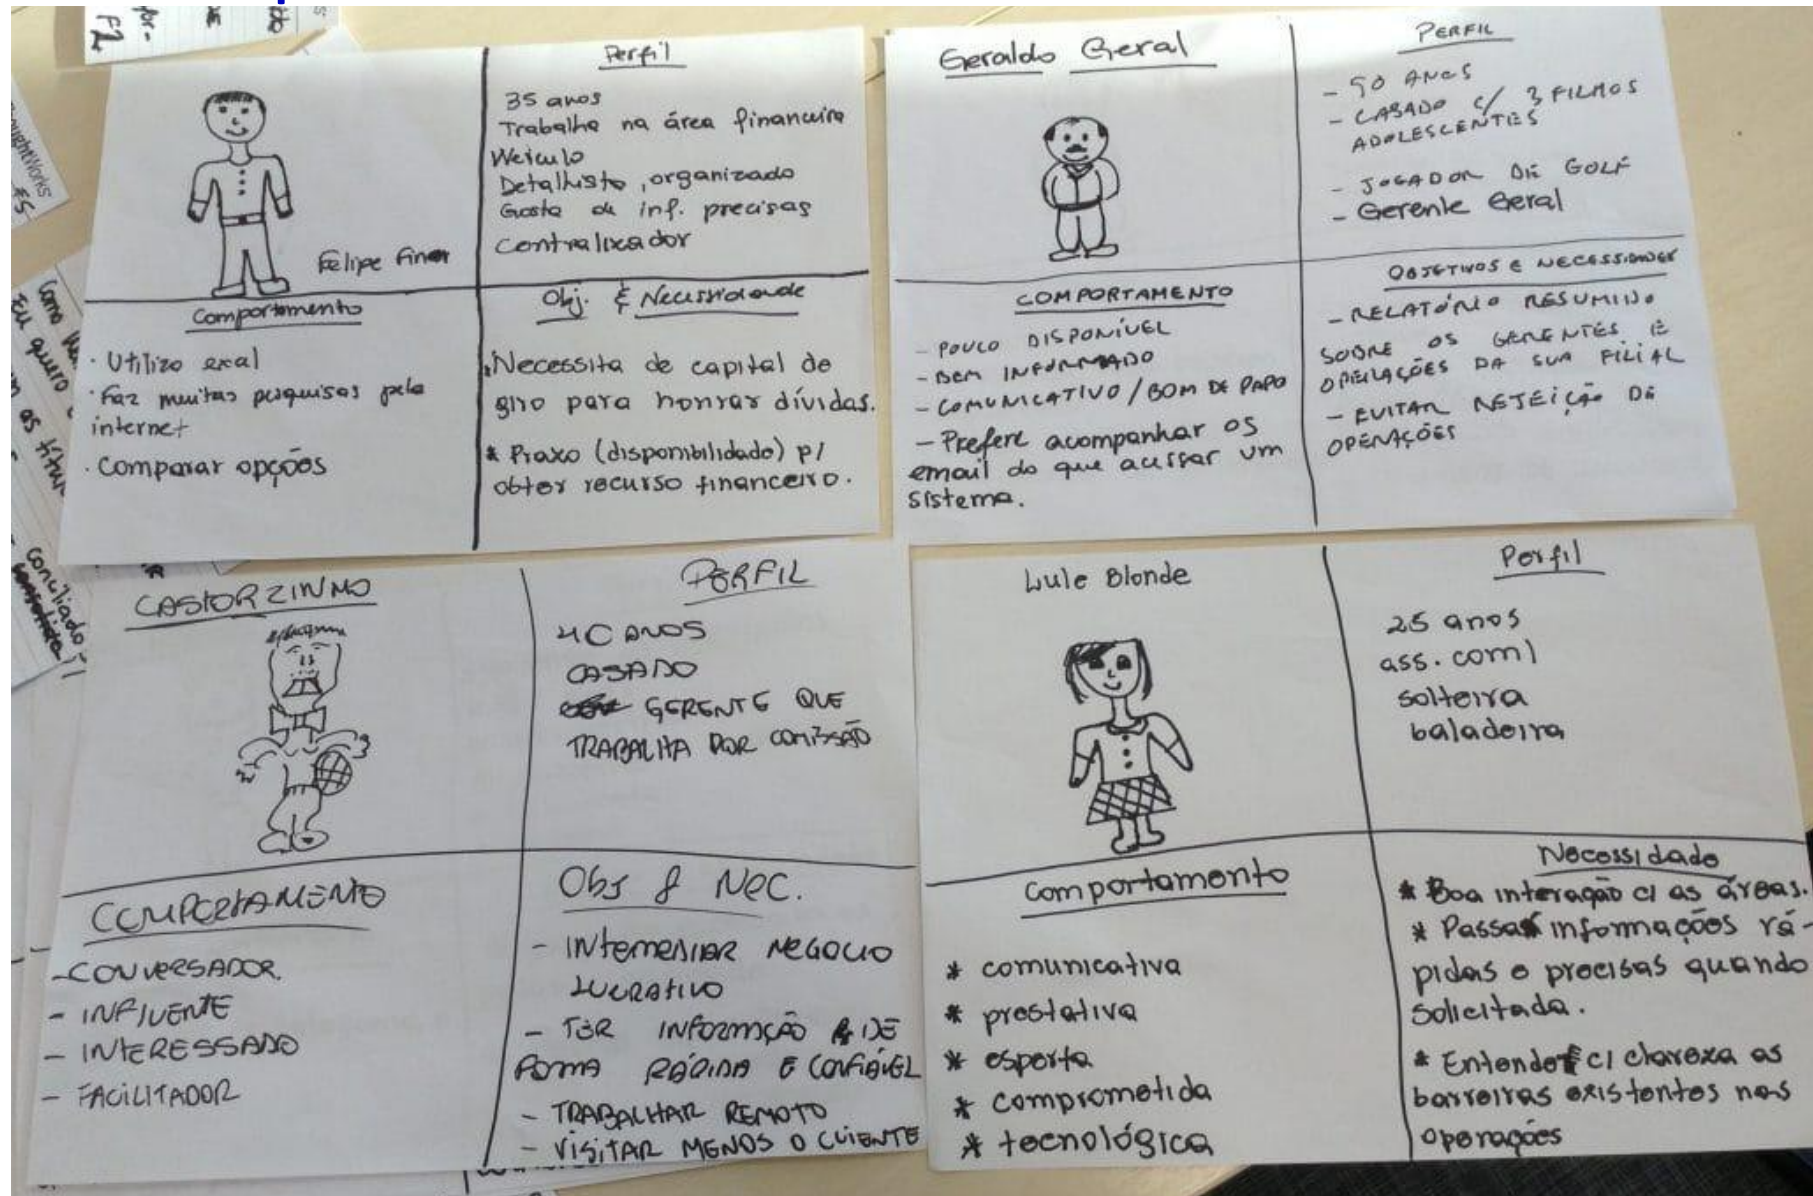 Perfil
35 anos
Trabalha na área financeira
Veiculo
Detalhista, organizado
Gosta de inf. precisas
Centralizador
Felipe Finan
Comportamento
· Utiliza exal
· Faz muitas pesquisas pela
internet
· Comparar opções
Obj. & Necessidade
Necessita de capital de
giro para honrar dívidas.
* Prazo (disponibilidade) p/
obter recurso financeiro.
Geraldo Geral
PERFIL
- 50 ANOS
- CASADO C/ 3 FILHOS
ADOLESCENTES
- JOGADOR DE GOLF
- Gerente Geral
COMPORTAMENTO
- POUCO DISPONÍVEL
- BEM INFORMADO
- COMUNICATIVO / BOM DE PAPO
- Prefere acompanhar os
email do que acessar um
sistema.
OBJETIVOS E NECESSIDADES
- RELATÓRIO RESUMIDO
SOBRE OS GERENTES E
OPERAÇÕES DA SUA FILIAL
- EVITAR REJEIÇÃO DE
OPERAÇÕES
CASTORZINHO
PERFIL
40 ANOS
CASADO
GERENTE QUE
TRABALHA POR COMISSÃO
COMPORTAMENTO
- CONVERSADOR.
- INFLUENTE
- INTERESSADO
- FACILITADOR
Obs & Nec.
- INTERMEDIAR NEGOCIO
LUCRATIVO
- TER INFORMAÇÃO DE
FORMA RÁPIDA E CONFIÁVEL
- TRABALHAR REMOTO
- VISITAR MENOS O CLIENTE
Lule Blonde
Perfil
25 anos
ass. coml
solteira
baladeira
Comportamento
* comunicativa
* prestativa
* esperta
* comprometida
* tecnológica
Necessidade
* Boa interação c/ as áreas.
* Passar informações rá-
pidas e precisas quando
solicitada.
* Entender c/ clareza as
barreiras existentes nas
operações
F2
Eu quero
conciliado